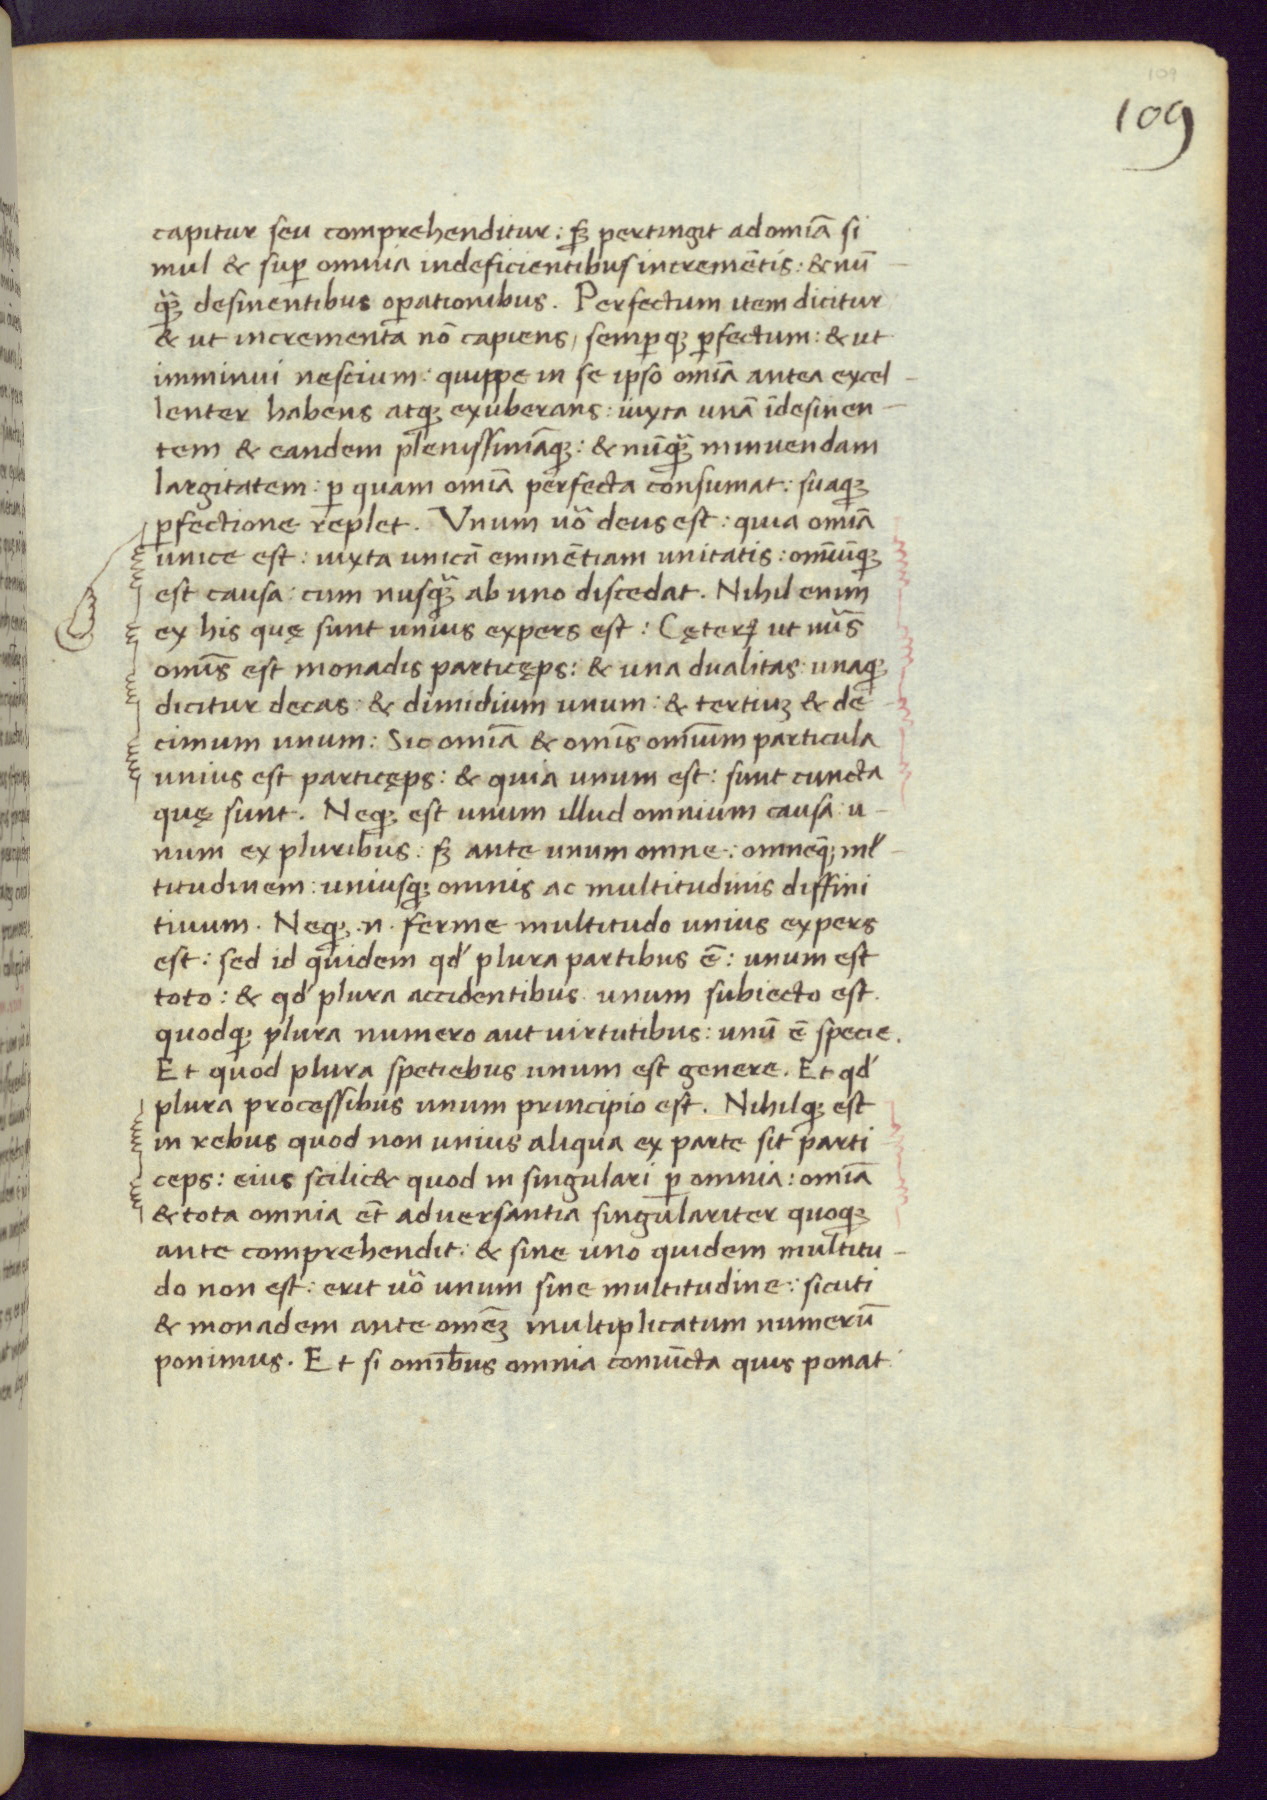 109
109
capitur seu comprehenditur: sꝫ pertingit ad omīa si
mul & suꝑ omnia indeficientibus incremētis: & nū-
qꝫ̄ desinentibus oꝑationibus. Perfectum item dicitur
& ut incrementa nō capiens, semꝑqꝫ ꝑfectum: & ut
imminui nescium: quippe in se ipso omīa antea excel-
lenter habens atqꝫ exuberans: iuxta unā īdesinen-
tem & eandem plenissimāqꝫ: & nūqꝫ̄ minuendam
largitatem: ꝑ quam omīa perfecta consumat: suaqꝫ
ꝑfectione replet. Vnum uō deus est: quia omīa
unice est: iuxta unicā eminētiam unitatis: omīūqꝫ
est causa: cum nusqꝫ̄ ab uno discedat. Nihil enim
ex his quę sunt unius expers est: Cęterꝝ ut nūs
omīs est monadis particęps: & una dualitas unaqꝫ
dicitur decas: & dimidium unum: & tertiuꝫ & de-
cimum unum: Sic omīa & omīs omīum particula
unius est particęps: & quia unum est: sunt cuncta
quę sunt. Neqꝫ est unum illud omnium causa u-
num ex pluribus: sꝫ ante unum omne: omnēqꝫ ml̄-
titudinem: uniusqꝫ omnis ac multitudinis diffini
tiuum. Neqꝫ .n. ferme multitudo unius expers
est: sed id quidem qd́ plura partibus ē: unum est
toto: & qd́ plura accidentibus unum subiecto est.
quodqꝫ plura numero aut uirtutibus: unū ē specie.
Et quod plura spetiebus unum est genere. Et qd́
plura processibus unum principio est. Nihilqꝫ est
in rebus quod non unius aliqua ex parte sit parti
ceps: eius scilic& quod in singulari ꝑ omnia: omīa
& tota omnia et̄ adversantia singulariter quoqꝫ
ante comprehendit: & sine uno quidem multitu-
do non est: erit uō unum sine multitudine: sicuti
& monadem ante omēꝫ multiplicatum numerū
ponimus. Et si omībus omnia coniūcta quis ponat